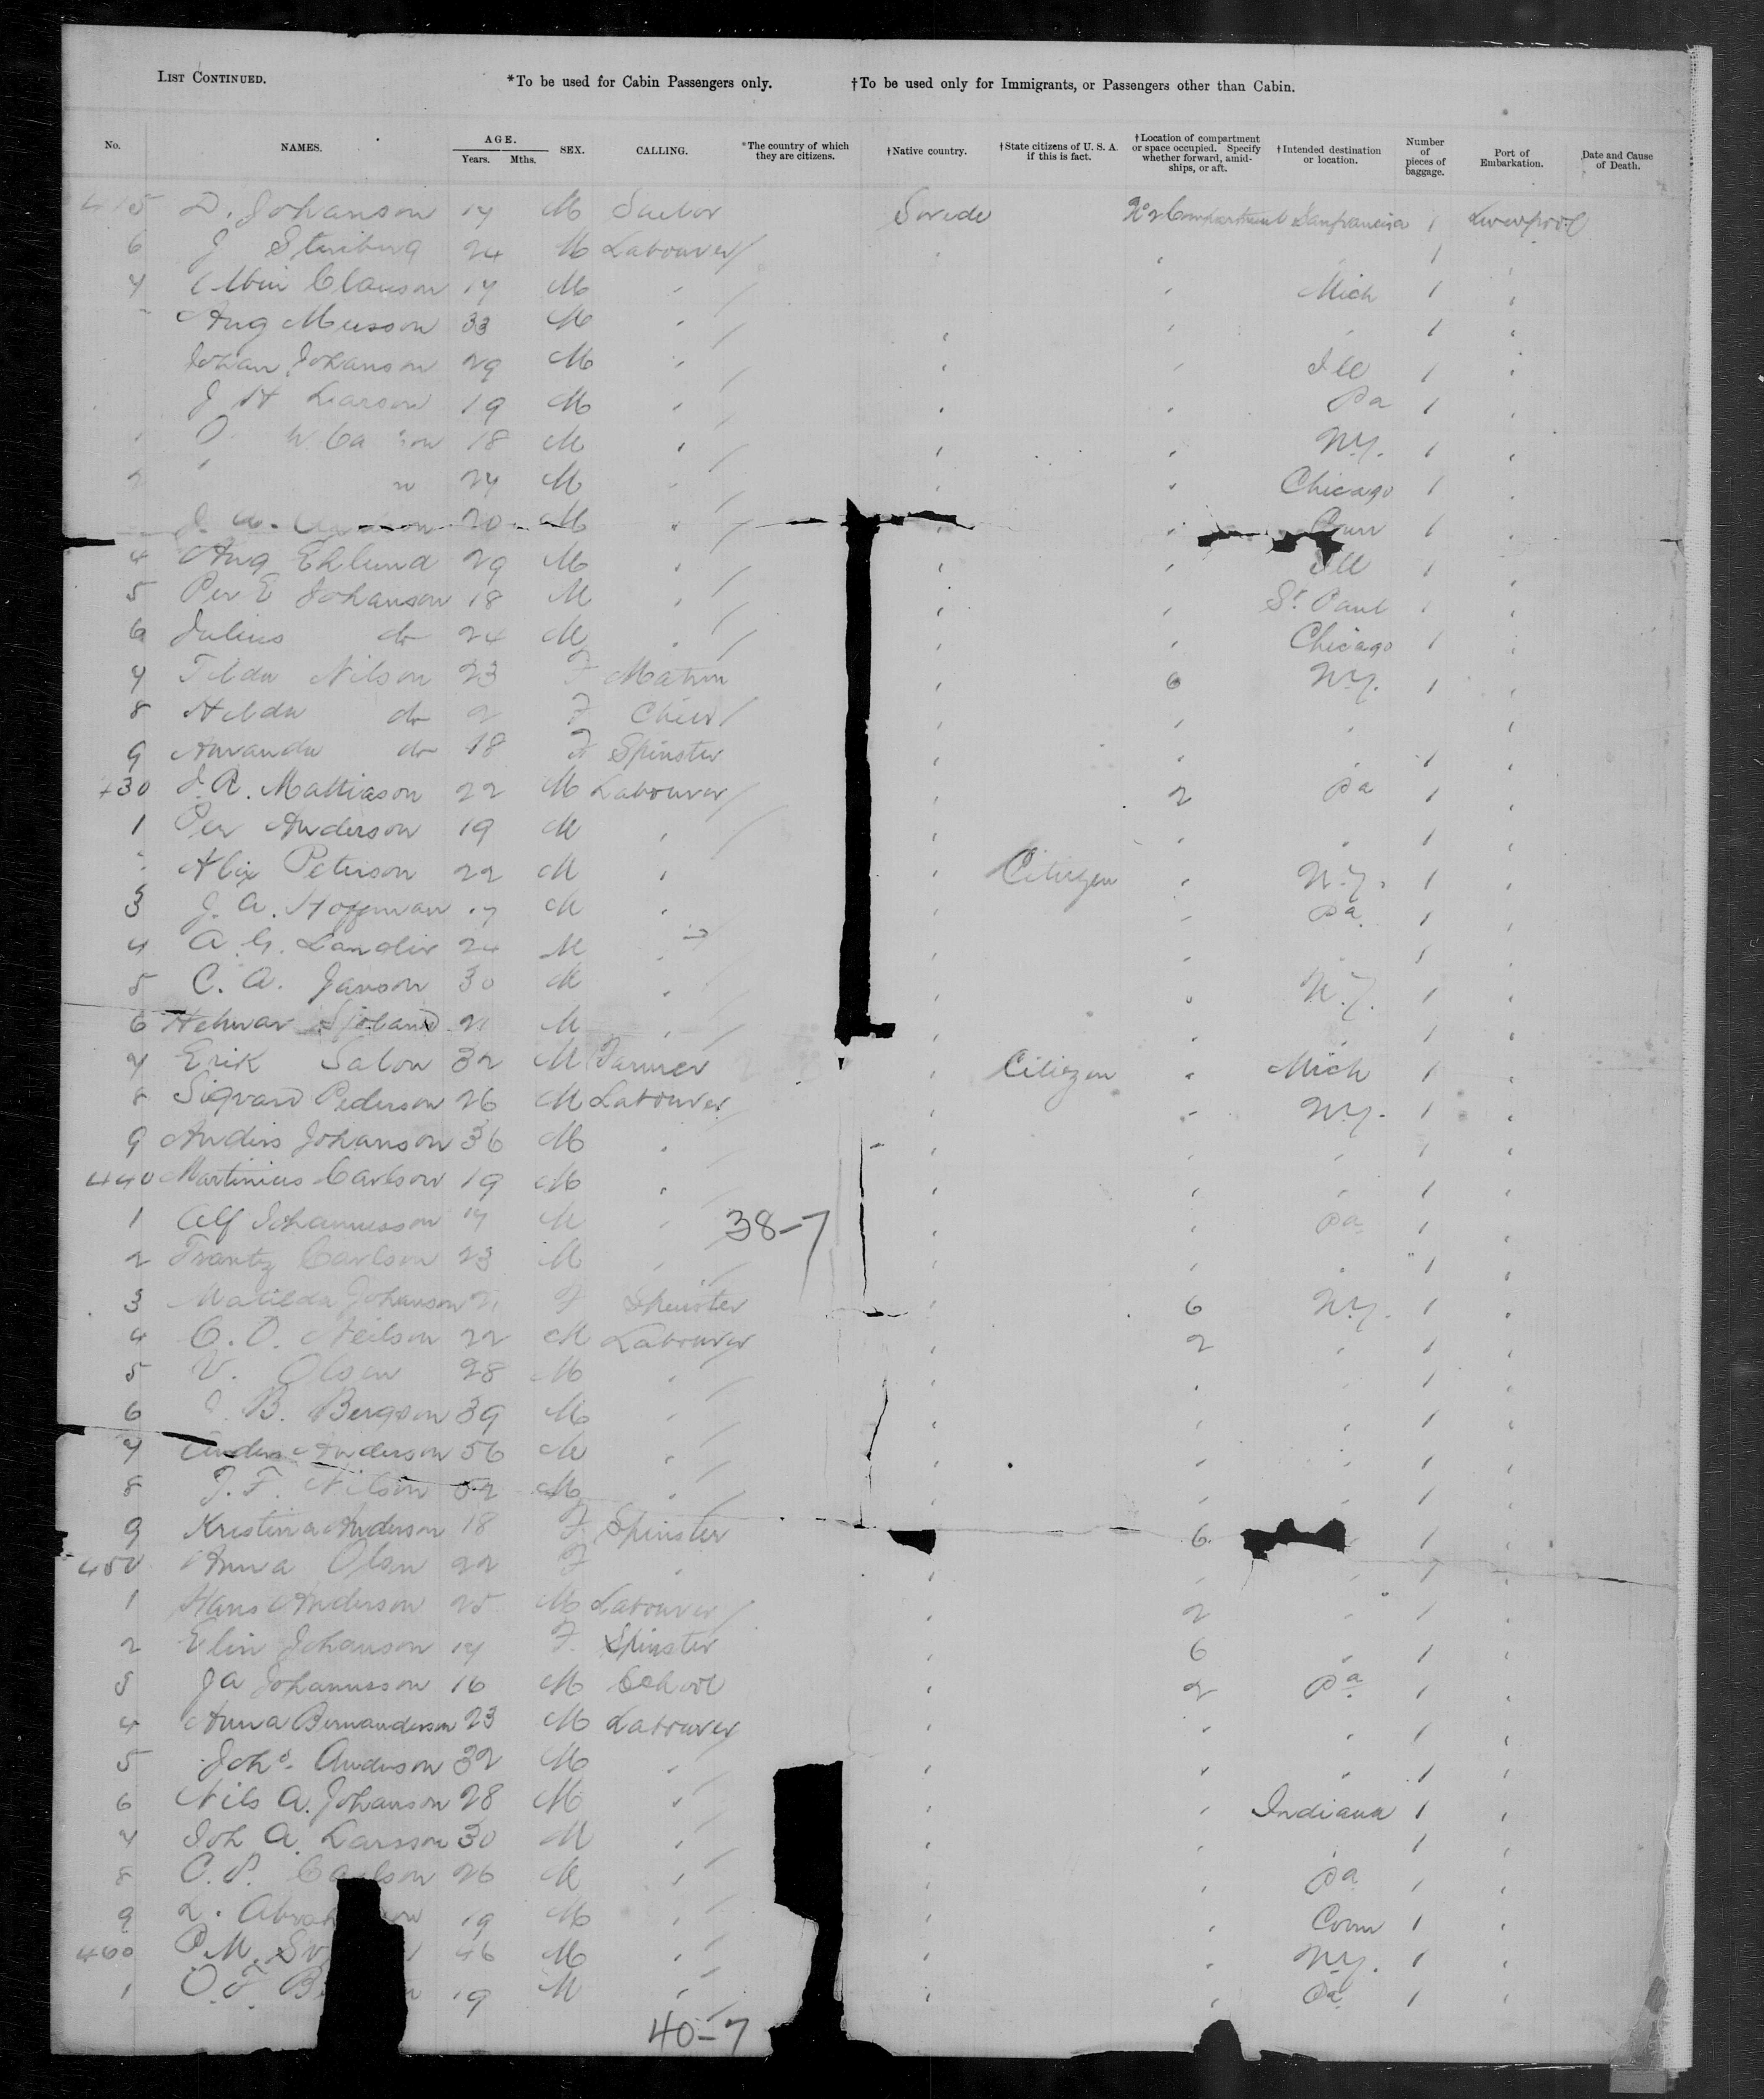 LIST CONTINUED. *To be used for Cabin Passengers only. †To be used only for Immigrants, or Passengers other than Cabin.
No. NAMES. AGE. Years. Mths. SEX. CALLING. *The country of which they are citizens. †Native country. †State citizens of U. S. A. if this is fact. †Location of compartment or space occupied. Specify whether forward, amidships, or aft. †Intended destination or location. Number of pieces of baggage. Port of Embarkation. Date and Cause of Death.
415 D. Johanson 17 M Sailor Swede No 2 Compartment Sanfrancisco 1 Liverpool
6 J 24 M Labourer 1
7 Clauson 17 M Mich 1
Aug 33 M 1
Johan Johanson 29 M Ill 1
J H Larson 19 M Pa 1
O. 18 M N.Y. 1
M Chicago 1
20 M Conn 1
4 Aug Eklund 29 M Ill 1
5 Per E Johanson 18 M St Paul 1
6 Julius do 24 M Chicago 1
7 Tilda Nilson 23 F Matron 6 N.Y. 1
8 Hilda do 2 F Child
9 Amanda do 18 F Spinster 1
430 J. R. Mattiason 22 M Labourer 2 Pa 1
1 Per Anderson 19 M 1
Alex Peterson 22 M Citizen N.Y. 1
3 J. A. Hoffman M Pa 1
4 A. G. 24 M 1
5 C. A. Janson 30 M N.Y. 1
6 21 M 1
7 Erik Salon 32 M Farmer Citizen Mich 1
8 Sigvard Pederson 26 M Labourer N.Y. 1
9 Anders Johanson 36 M 1
440 Martinius Carlson 19 M 1
1 Alf Johannesson 17 M 38-7 Pa 1
2 Frantz Carlson 23 M 1
3 Matilda Johanson 21 F Spinster 6 N.Y. 1
4 C. O. Neilson 22 M Labourer 2 1
5 V. Olsen 28 M 1
6 B. Bergson 39 M 1
7 Anders Anderson 56 M 1
8 F. Nilson 52 M 1
9 Kristina Anderson 18 F Spinster 6 1
450 Anna Olson 22 F 1
1 Hans Anderson 25 M Labourer 2 1
2 Elin Johanson 17 F Spinster 6 1
3 J A Johannsson 16 M School 2 Pa 1
4 Anna 23 M Labourer 1
5 Johs. Anderson 32 M 1
6 Nils A. Johanson 28 M Indiana 1
7 Joh A. Larsson 30 M 1
8 Carlson 26 M Pa 1
9 19 M Conn 1
460 P. M. 46 M N.Y. 1
1 O. F. 19 M Pa 1
40-7